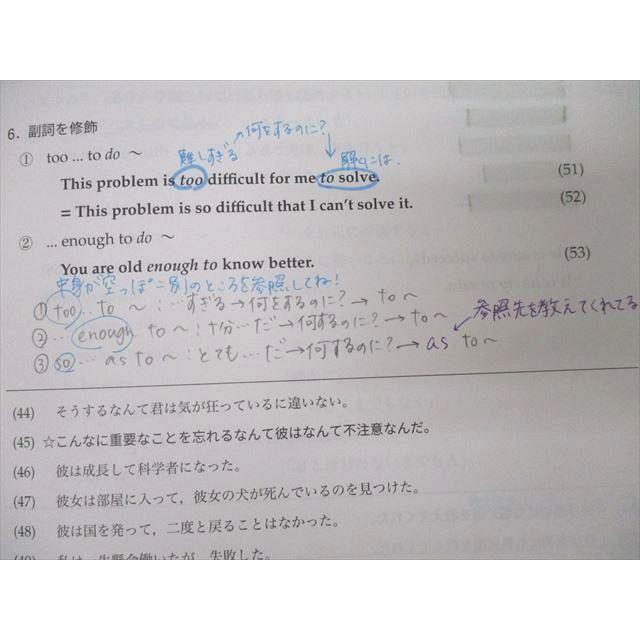 6. 副詞を修飾
何をするのに?
① too ... to do 〜
難しすぎる 解くには.
This problem is too difficult for me to solve. (51)
= This problem is so difficult that I can't solve it. (52)
② ... enough to do 〜
You are old enough to know better. (53)
中身が空っぽ=別のところを参照してね!
① too … to 〜 : …すぎる→何をするのに?→ to 〜
② … enough to 〜 : 十分…だ→何するのに?→ to 〜
参照先を教えてくれてる
③ so … as to 〜 : とても…だ→何するのに?→ as to 〜
(44) そうするなんて君は気が狂っているに違いない。
(45) ☆こんなに重要なことを忘れるなんて彼はなんて不注意なんだ。
(46) 彼は成長して科学者になった。
(47) 彼女は部屋に入って，彼女の犬が死んでいるのを見つけた。
(48) 彼は国を発って，二度と戻ることはなかった。
(49) 私は一生懸命働いたが，失敗した。